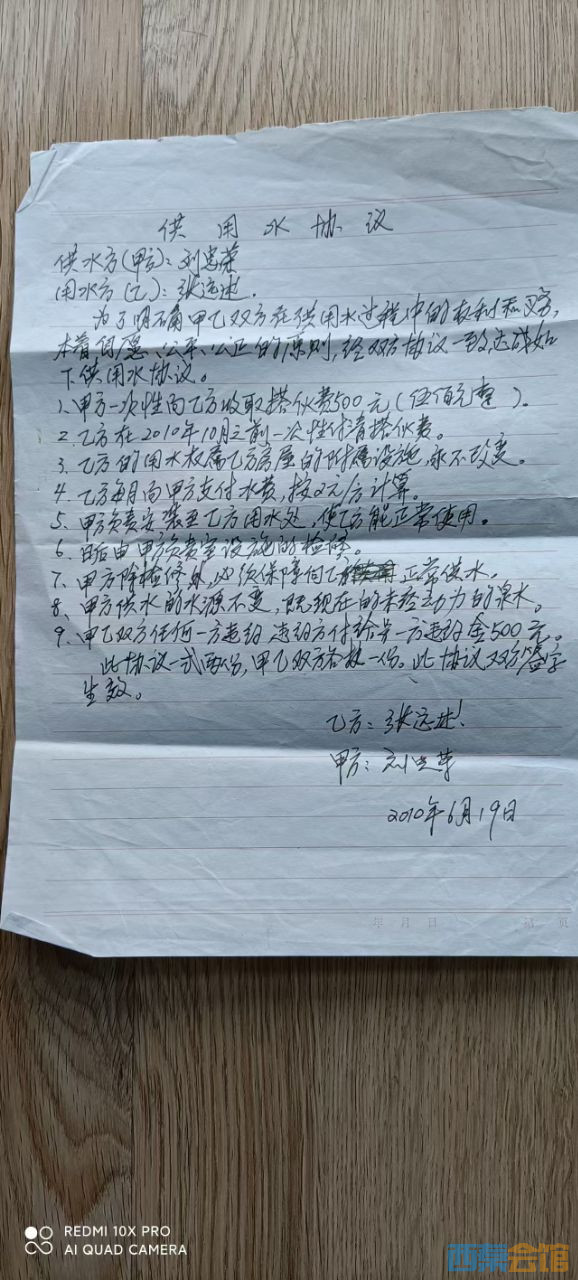 供用水协议
供水方(甲方):刘忠荣
用水方(乙):张远述.
为了明确甲乙双方在供用水过程中的权利和义务,
本着自愿、公平、公正的原则,经双方协议一致,达成如
下供用水协议。
1、甲方一次性向乙方收取搭伙费500元(伍佰元整)。
2、乙方在2010年10月之前一次性付清搭伙费。
3、乙方的用水权属乙方房屋的附属设施,永不改变。
4、乙方每月向甲方支付水费,按2元/方计算。
5、甲方负责安装至乙方用水处,使乙方能正常使用。
6、日后由甲方负责室设施的检修。
7、甲方除检修外,必须保障向乙方正常供水。
8、甲方供水的水源不变,既现在的未经动力的泉水。
9、甲乙双方任何一方违约,违约方付给另一方违约金500元。
此协议一式两份,甲乙双方各执一份。此协议双方签字
生效。
乙方:张远述
甲方:刘忠荣
2010年6月19日
年 月 日 页
REDMI 10X PRO
AI QUAD CAMERA
西祠会馆